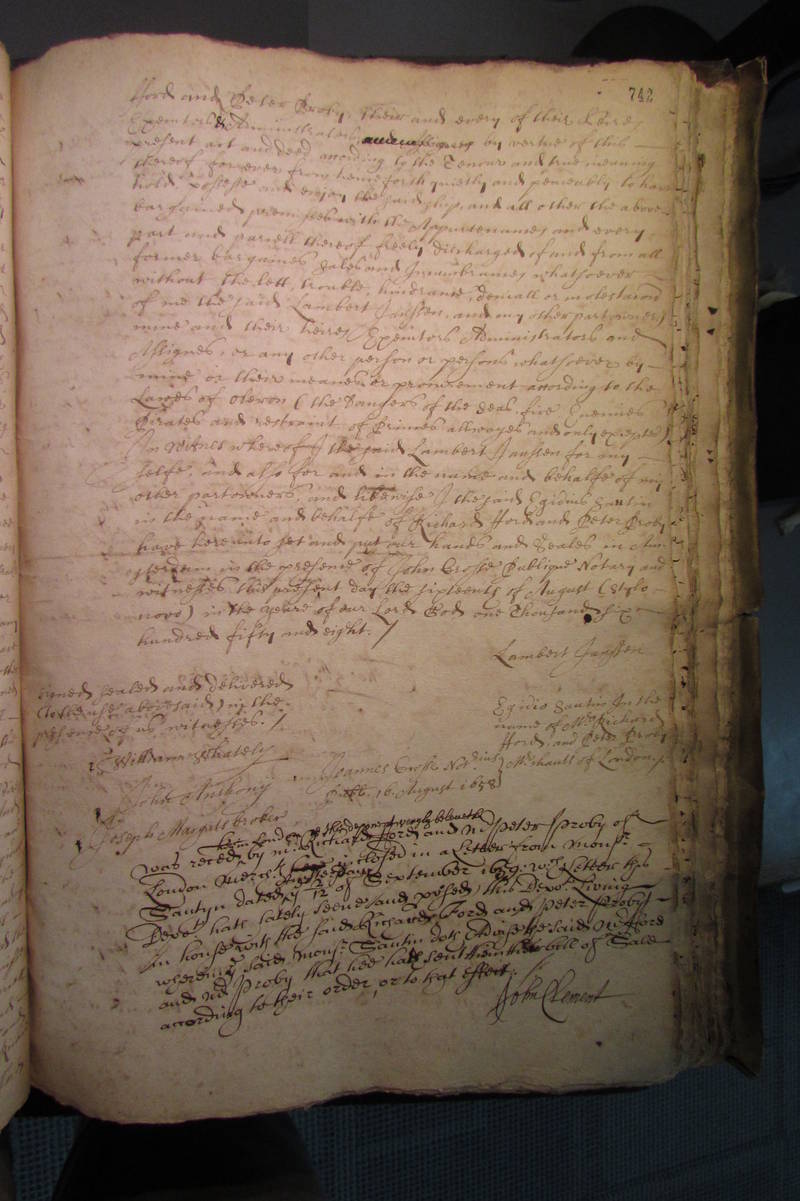 742
fford and Peter Proby, their and every of their heires
Executors & Administrators by vertue of this
present act and deed according to the Tenour and true meaning
thereof forever from hence forth quietly and peaceably to have
hold, possesse and enjoy the said ship, and all other the above
bargained premisses with the Appurtenances and every
part and parcell thereof freely discharged of and from all
former bargaines sales and Incumbrances whatsoever
without the lett, trouble, hindrance, deniall or molestacion
of me the said Lambert Janssen, and my other partowners
mine and their heires Executors Administrators and
Assignes, or any other person or persons whatsoever by
mine or their meanes or procurement according to the
Lawes of Oleron (the Dangers of the Seas, fire Enemies
Pirates and restraint of Princes allwayes and only excepted)
In Witnes whereof I the said Lambert Janssen for my
selfe, and also for and in the name and behalfe of my
other partowners, and likewise I the said Egidius Santin
in the name and behalfe of Richard fford and Peter Proby
have hereunto set and put our hands and Seales in Am
sterdam in the presence of John Crosse Publique Notary and
witnesses this present day the sixteenth of August (Stylo
novo) in the yeare of our Lord God one Thousand six
hundred fifty and eight. /
Lambert Janssen
Signed sealed and delivered
abovesaid) in the
presence of us witnesses. /
Egidio Santin In the
name of Mr Richard
fford, and Peter Proby
Merchants of London.
William Whately
John Anthony
Joannes Crosse Not
16. August 1658
Joseph Margetts broker
was receaved by mr. Richard fford and Mr Peter Proby of
London Merchts inclosed in a Letter from Monsr.
Santyn dated ye 12 of September wch Letter this
Depot hath lately seene and perused, this Depot living
in house with the said Richard Ford and Peter Proby
wherein ye said Monsr. Santin doth Advise the said Mr fford
and Mr Proby that hee hath sent them the bill of Sale
according to their order, or to that effect.
John Clement